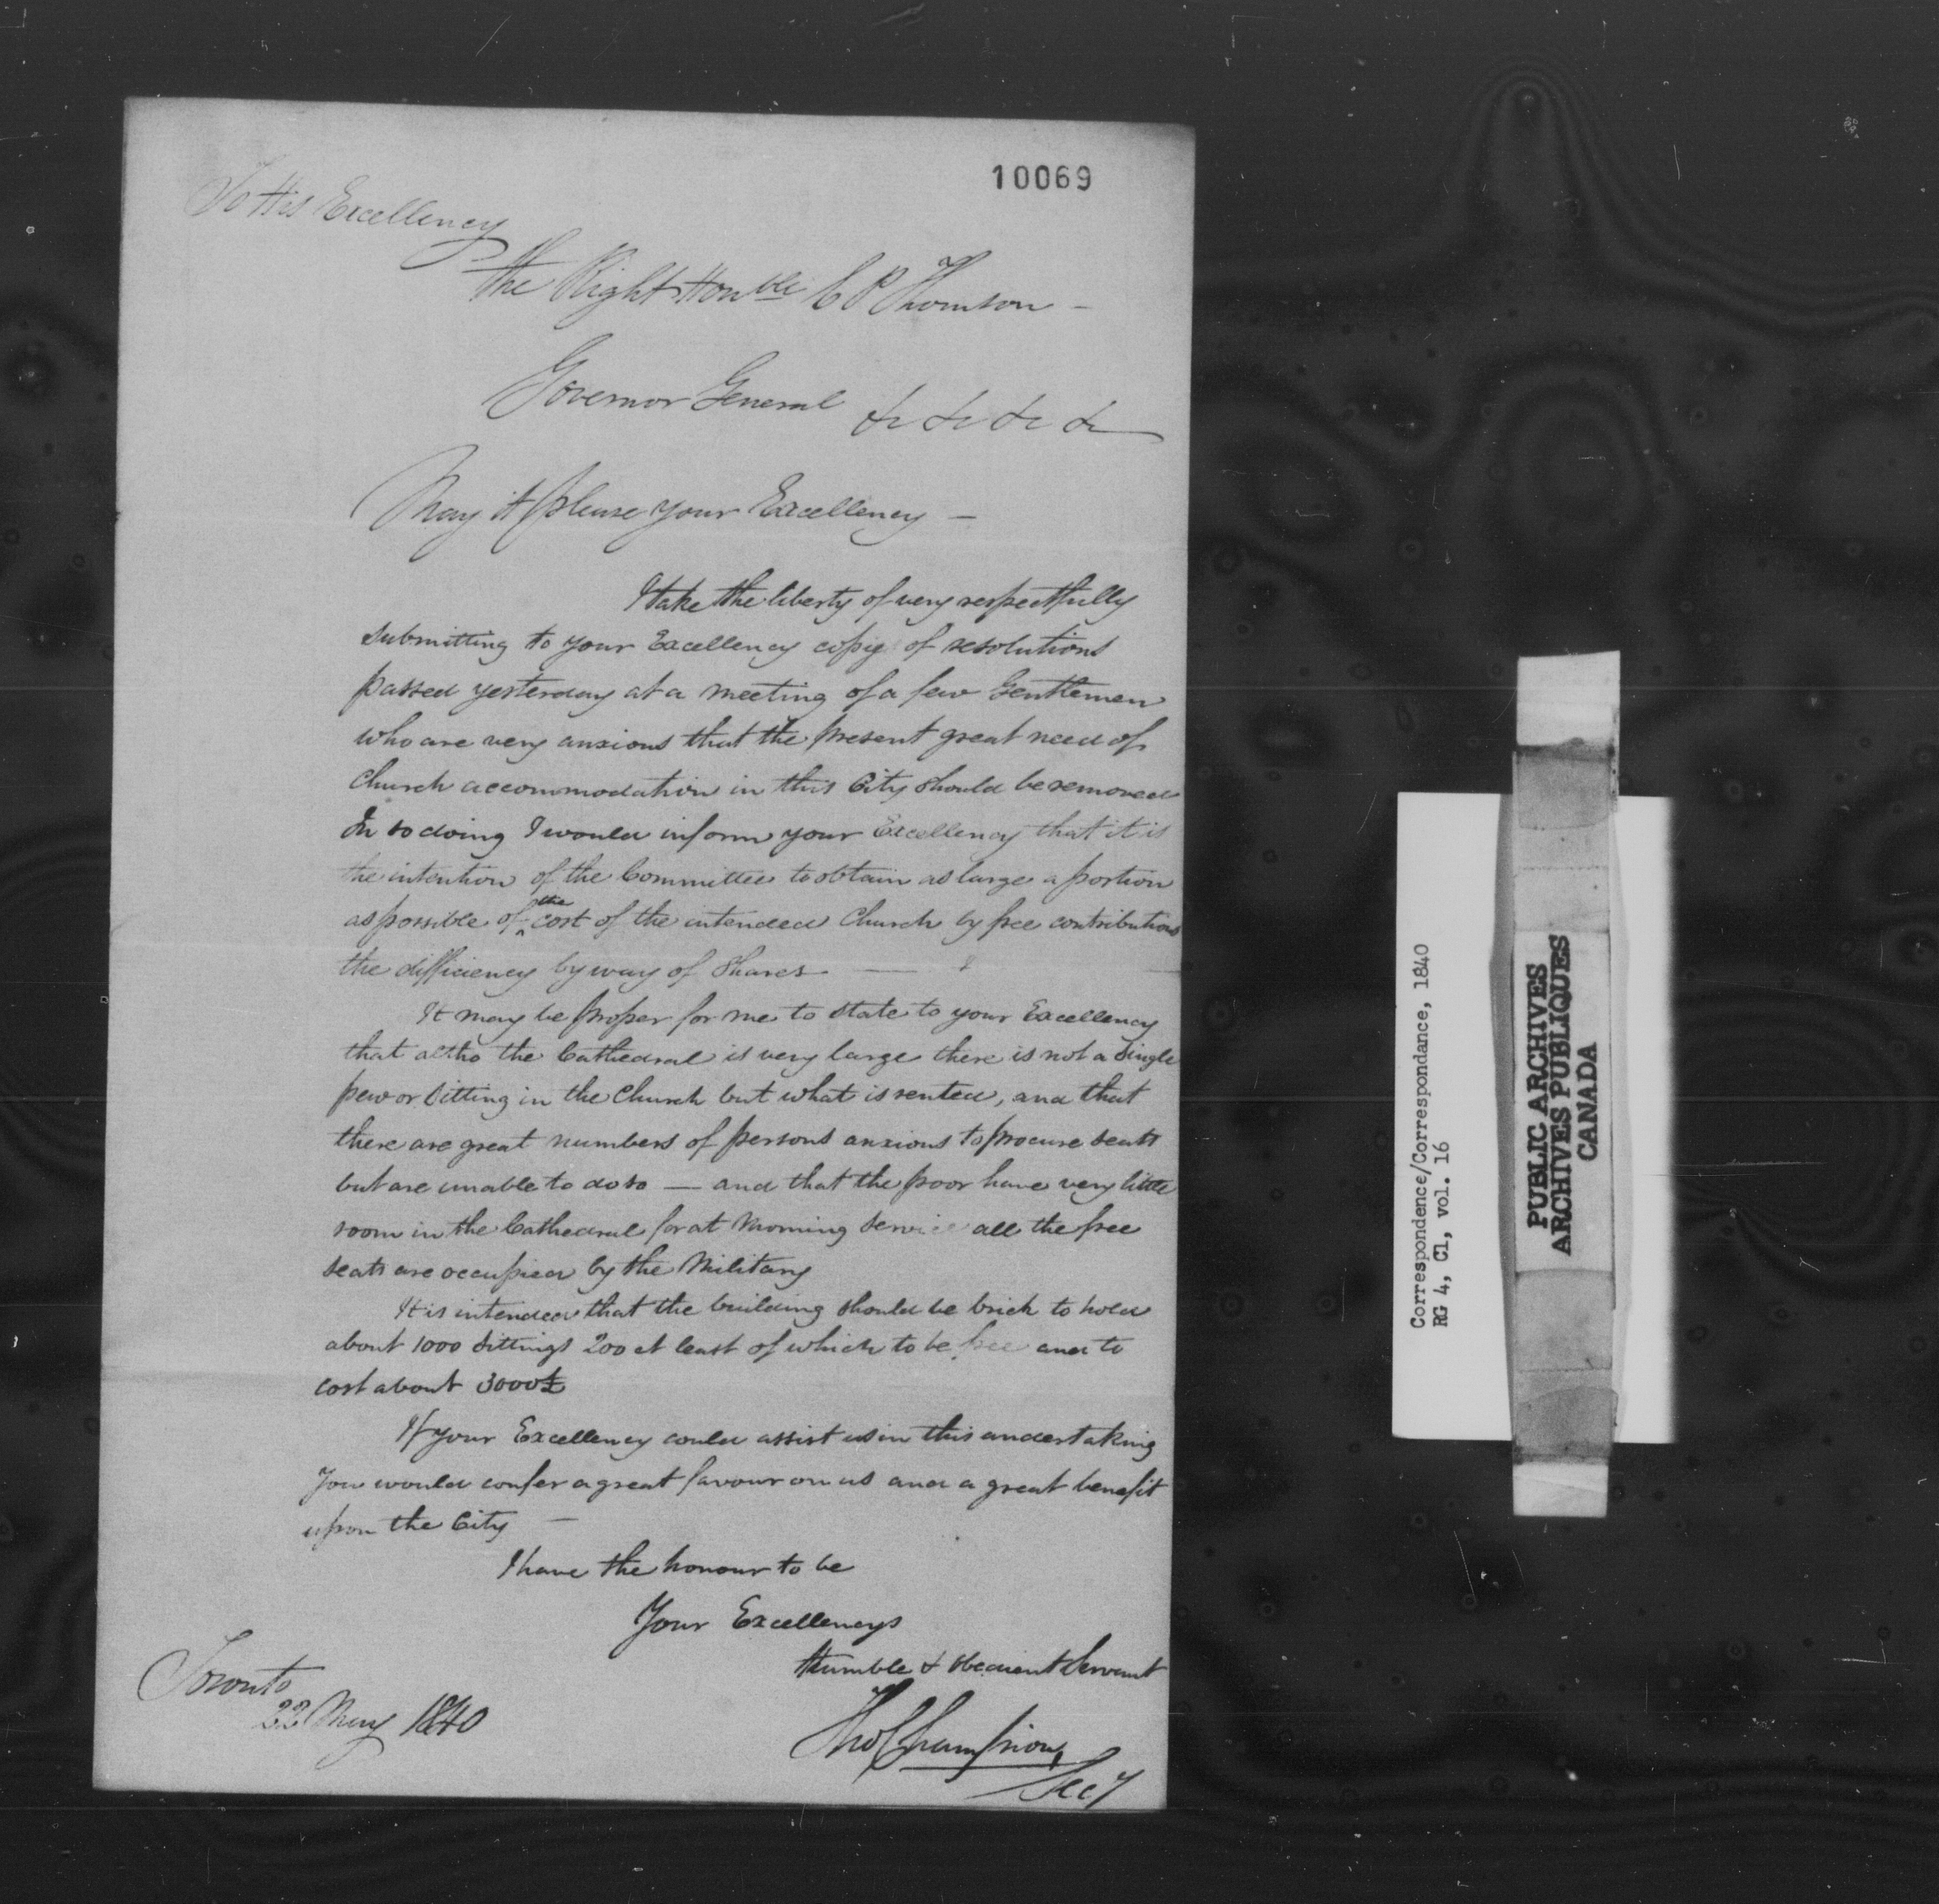 10069
To His Excellency
the Right Honble C P Thomson —
Governor General &c &c &c &c
May it please your Excellency —
I take the liberty of very respectfully
submitting to your Excellency copy of resolutions
passed yesterday at a meeting of a few Gentlemen
who are very anxious that the present great need of
Church accommodation in this City should be removed
In so doing I would inform your Excellency that it is
the intention of the Committee to obtain as large a portion
as possible of the cost of the intended Church by free contributions
the difficiency by way of Shares —
It may be proper for me to state to your Excellency
that altho the Cathedral is very large there is not a single
pew or Sitting in the Church but what is rented, and that
there are great numbers of persons anxious to procure seats
but are unable to do so — and that the poor have very little
room in the Cathedral for at Morning Service all the free
seats are occupied by the Military
It is intended that the building should be brick to hold
about 1000 Sittings 200 at least of which to be free and to
cost about 3000£
If your Excellency could assist us in this undertaking
You would confer a great favour on us and a great benefit
upon the City —
I have the honour to be
Your Excellencys
Humble & obedient Servant
Thos Champion
Secy
Toronto
22 May 1840
Correspondence/Correspondance, 1840
RG 4, C1, vol. 16
PUBLIC ARCHIVES
ARCHIVES PUBLIQUES
CANADA